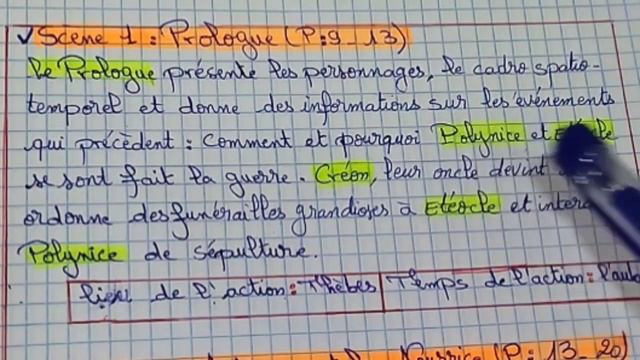 ✓ Scène 1 : Prologue (P:9_13)
Le Prologue présente les personnages, le cadre spatio-
temporel et donne des informations sur les événements
qui précèdent : Comment et pourquoi Polynice et
se sont fait la guerre. Créon, leur oncle devint
ordonne des funérailles grandioses à Etéocle et
Polynice de sépulture.
lieu de l'action : Thèbes Temps de l'action :
Nourrice (P: 13_20)